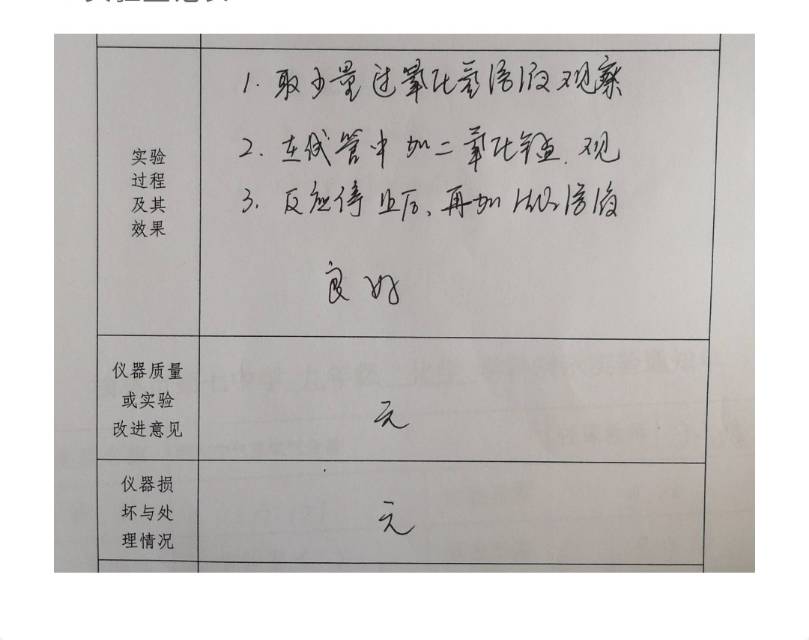 实验
过程
及其
效果
1. 取少量过氧化氢溶液观察
2. 在试管中加二氧化锰.观
3. 反应停止后、再加H₂O₂溶液
良好
仪器质量
或实验
改进意见
无
仪器损
坏与处
理情况
无